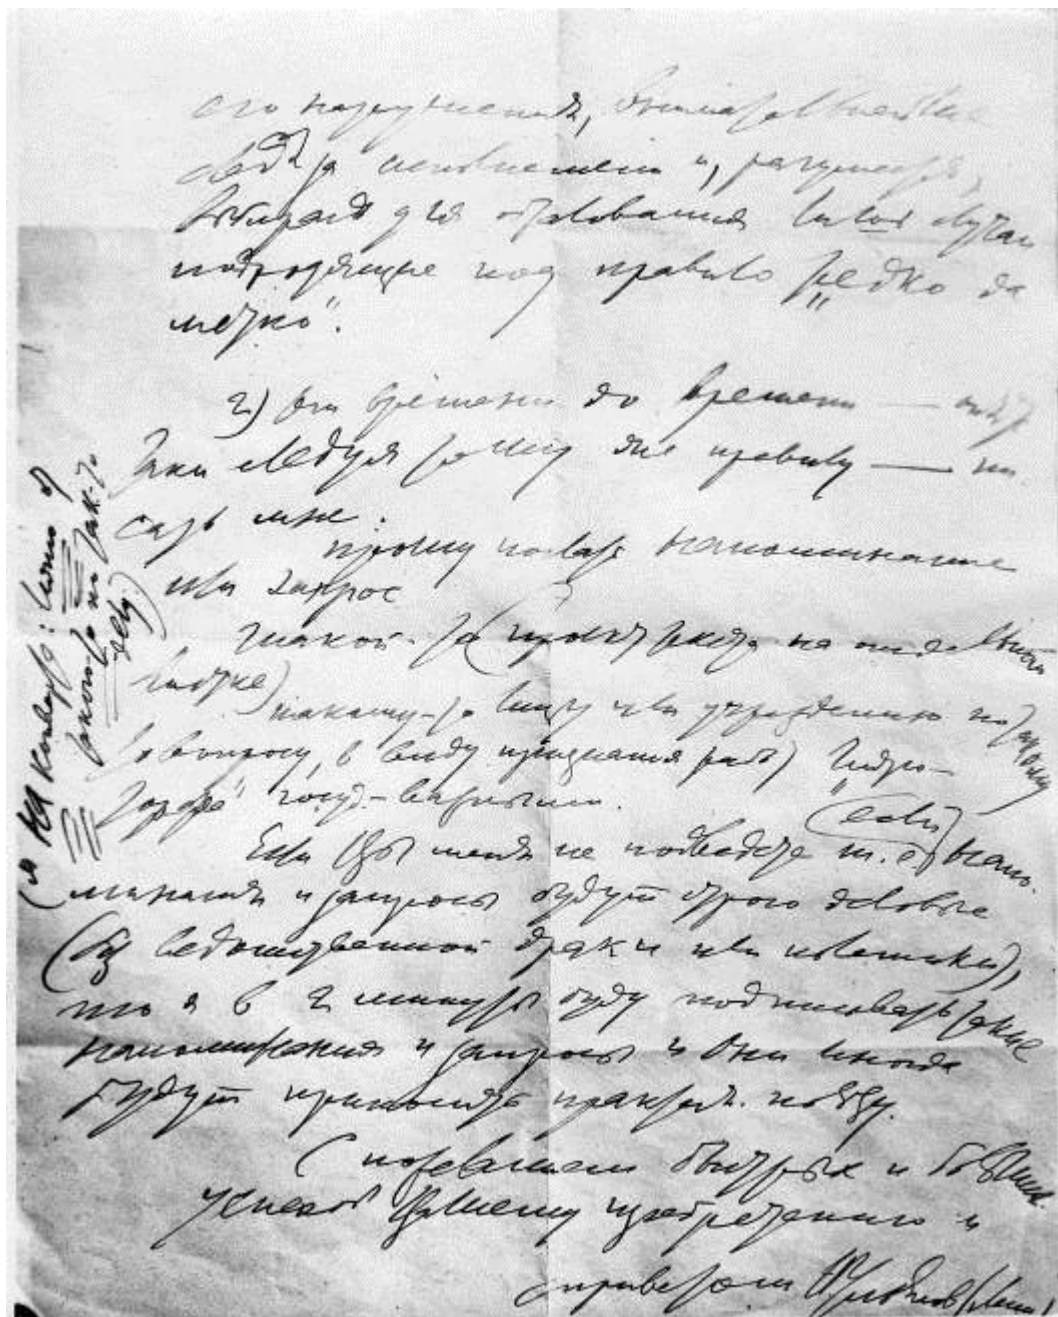 его нарушения, внимательнейше
следить за исполнением и, разумеется,
выбирать для обжалования лишь случаи
подходящие под правило „редко да
метко".
2) от времени до времени — опять
таки следуя тому же правилу — пи-
сать мне:
прошу послать напоминание
или запрос
такой-то (проект текста на отдельном
листке)
такому-то лицу или учреждению по такому
то вопросу, в виду признания работ „Гидро-
торфа" госуд.-важными.
Если Вы меня не подведете т. е. (если) напо-
минания и запросы будут строго деловые
(без ведомственной драки или полемики),
то я в 2 минуты буду подписывать такие
напоминания и запросы и они иногда
будут приносить практич. пользу.
С пожеланием быстрых и больших
успехов Вашему изобретению и
с приветом В. Ульянов (Ленин)
(и на конверте: лично от
такого-то по так.-то
делу.)